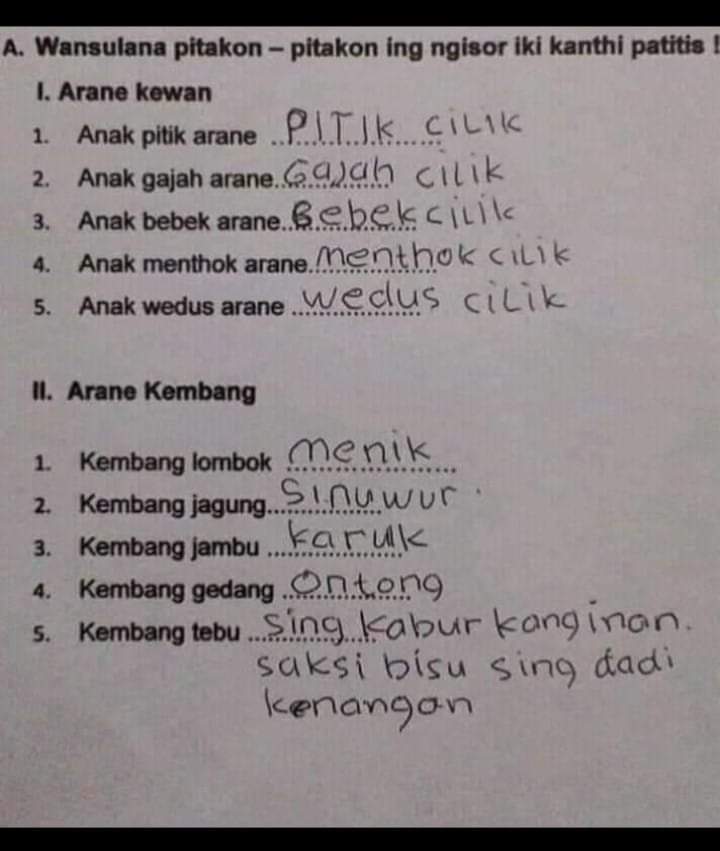 A. Wansulana pitakon – pitakon ing ngisor iki kanthi patitis !
I. Arane kewan
1. Anak pitik arane ..PITIK cilik
2. Anak gajah arane..Gajah cilik
3. Anak bebek arane..Bebek cilik
4. Anak menthok arane.menthok cilik
5. Anak wedus arane ..wedus cilik
II. Arane Kembang
1. Kembang lombok menik
2. Kembang jagung...Sinuwur
3. Kembang jambu ...karuk
4. Kembang gedang ..Ontong
5. Kembang tebu ...Sing kabur kanginan.
saksi bisu sing dadi
kenangan